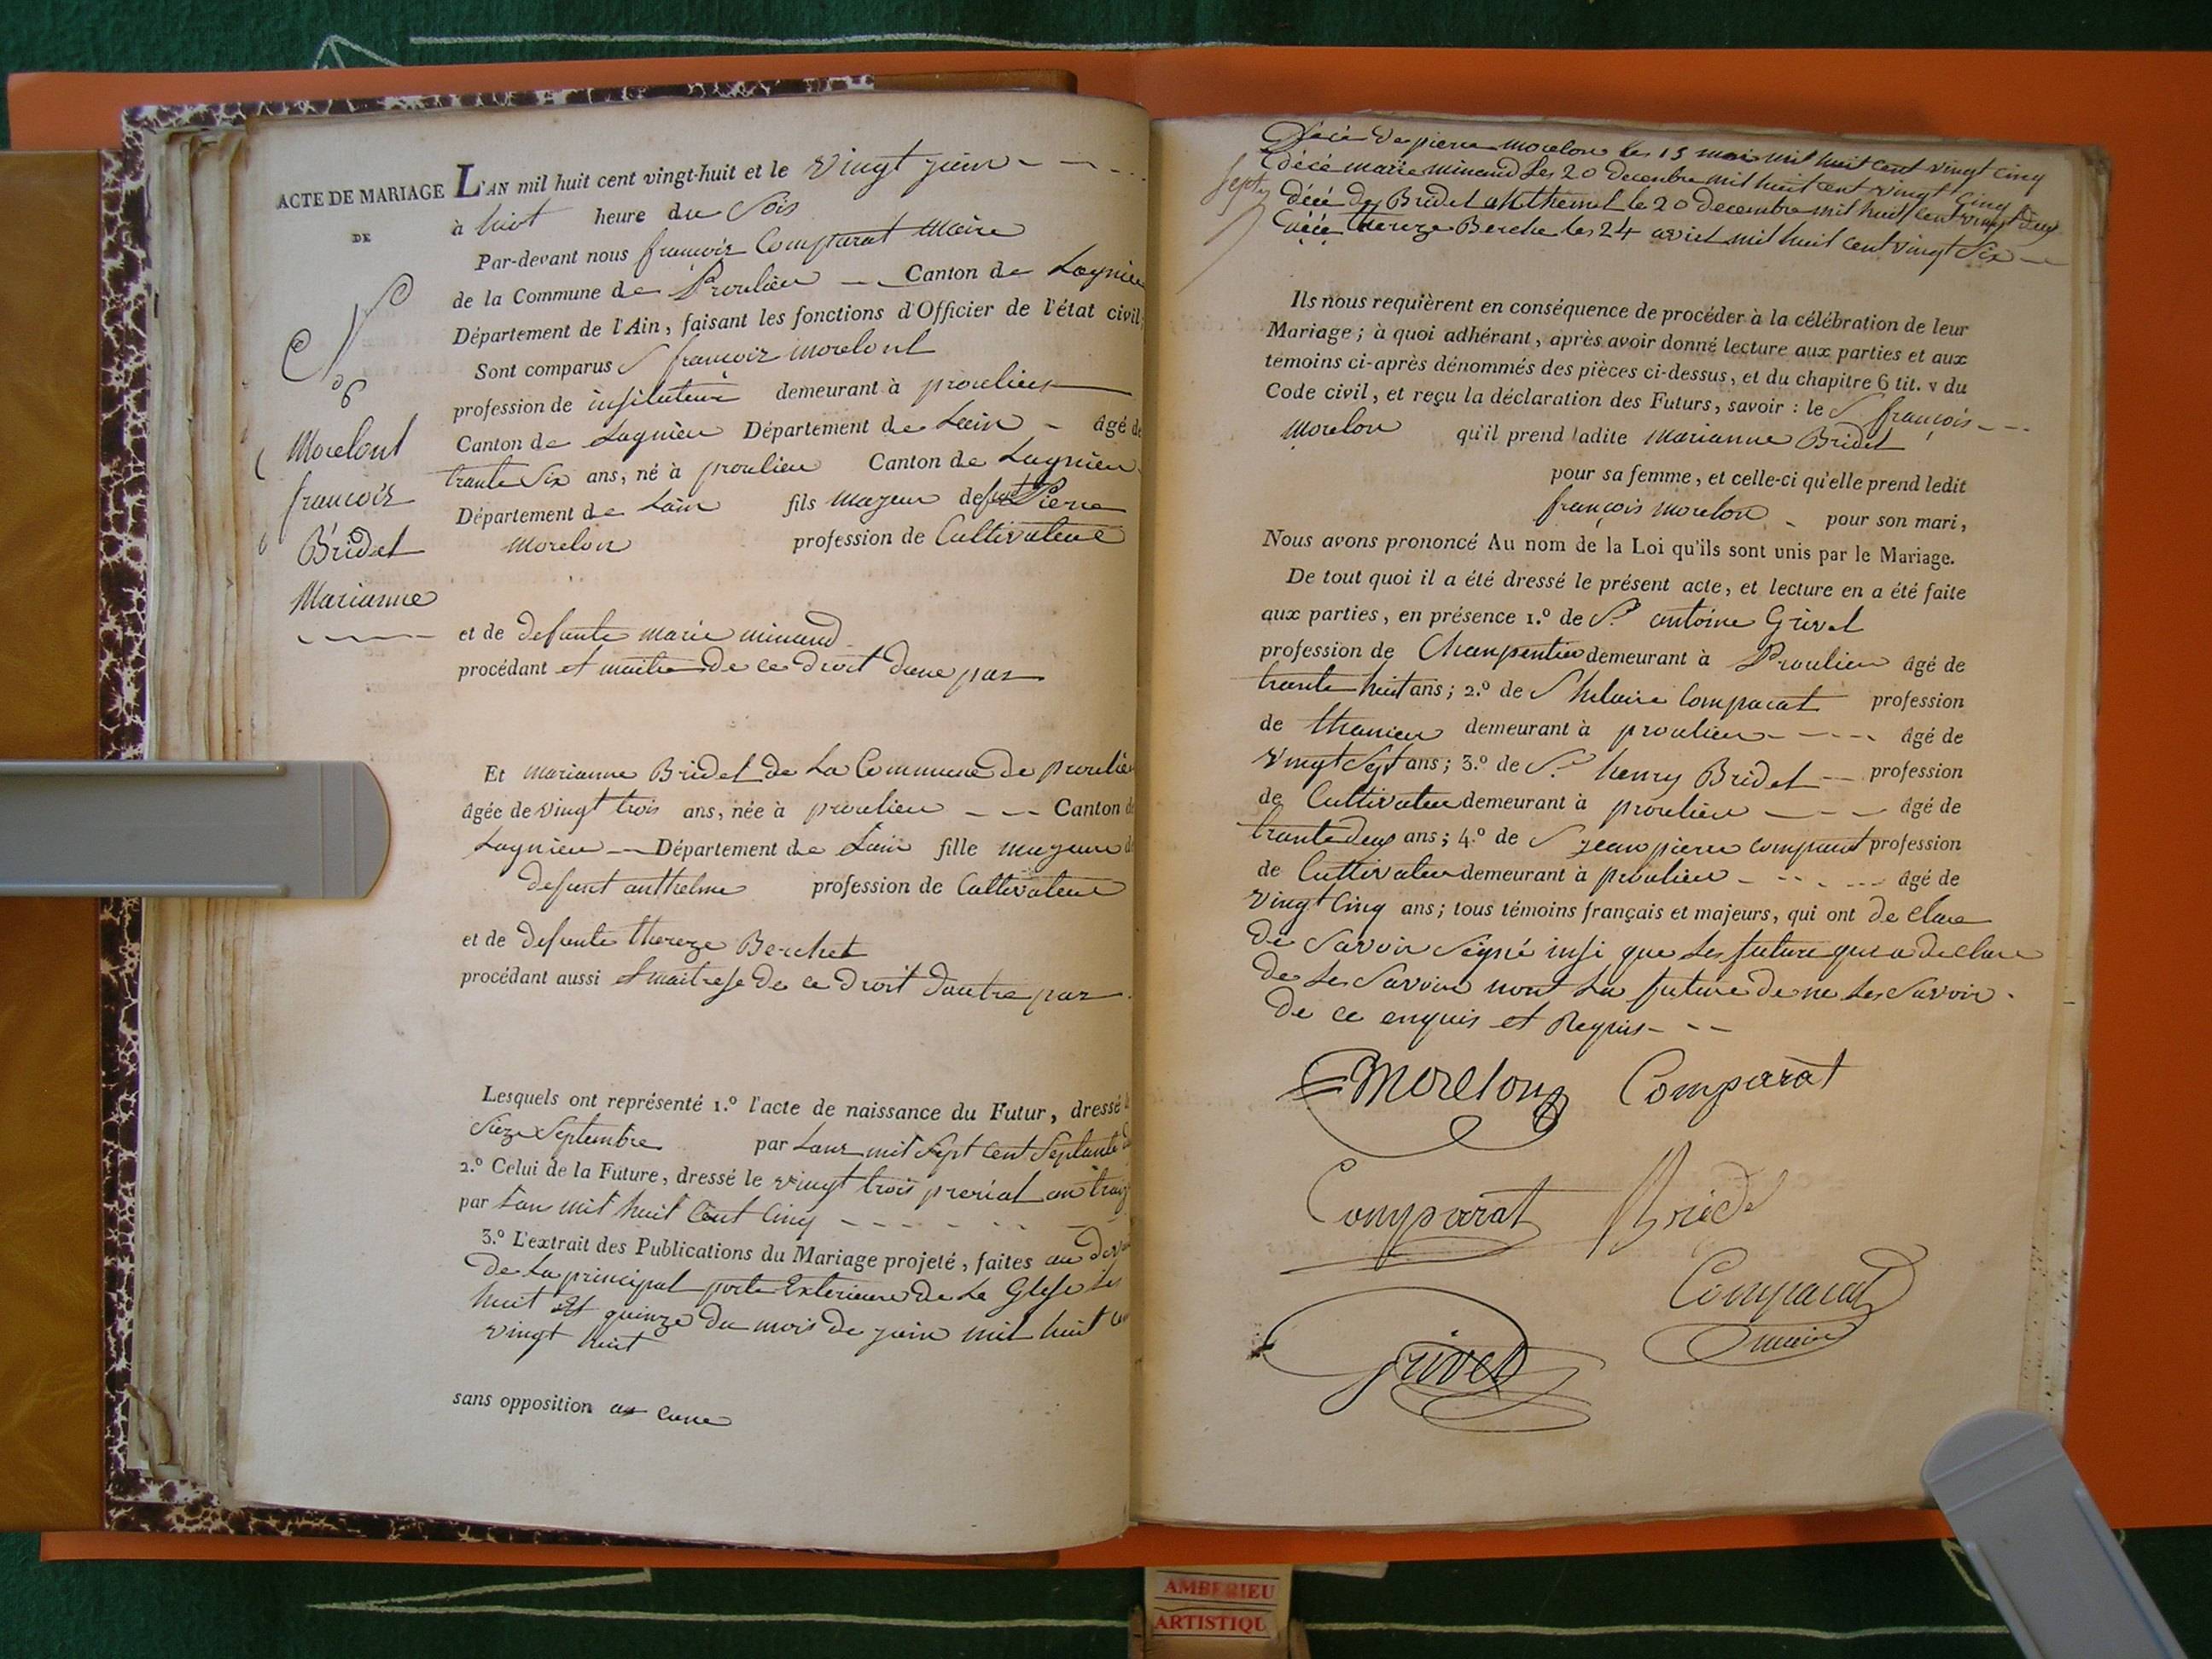 ACTE DE MARIAGE
DE
N.o 6
Morelont
francois
Bridet
Marianne
L'AN mil huit cent vingt-huit et le vingt juin
à huit heure du Sois
Par-devant nous françois Comparat Maire
de la Commune de Proulieu Canton de Lagnieu
Département de l'Ain, faisant les fonctions d'Officier de l'état civil,
Sont comparus S françois morelont
profession de instituteur demeurant à proulieu
Canton de Lagnieu Département de Lain âgé de
trante Six ans, né à proulieu Canton de Lagnieu
Département de Lain fils mageur defunt Pierre
morelon profession de Cultivateur
et de defunte marie minand
procédant et maitre de ce droit dune par
Et marianne Bridet de La Commune de proulieu
âgée de vingt trois ans, née à proulieu Canton de
Lagnieu Département de Lain fille mageure de
defunt anthelme profession de Cultivateur
et de defunte thereze Berchet
procédant aussi et maitresse de ce droit dautre par
Lesquels ont représenté 1.º l'acte de naissance du Futur, dressé
Sieze Septembre par Lans mil Sept Cent Septante
2.º Celui de la Future, dressé le vingt trois prerial an traize
par Lan mil huit Cent Cinq
3.º L'extrait des Publications du Mariage projeté, faites au devant
de La principal porte Exterieure de Le Glese Les
huit et quinze du mois de juin mil huit
vingt huit
sans opposition au cune
Décé de pierre morelon les 15 mai mil huit cent vingt cinq
décé marie minand Les 20 Decembre mil huit cent vingt Cinq
Sept décé de Bridet anthemel le 20 decembre mil huit cent vingt deux
décé thereze Berche les 24 avril mil huit cent vingt Six
Ils nous requièrent en conséquence de procéder à la célébration de leur
Mariage; à quoi adhérant, après avoir donné lecture aux parties et aux
témoins ci-après dénommés des pièces ci-dessus, et du chapitre 6 tit. v du
Code civil, et reçu la déclaration des Futurs, savoir : le S. françois
Morelon qu'il prend ladite marianne Bridet
pour sa femme, et celle-ci qu'elle prend ledit
françois morelon pour son mari,
Nous avons prononcé Au nom de la Loi qu'ils sont unis par le Mariage.
De tout quoi il a été dressé le présent acte, et lecture en a été faite
aux parties, en présence 1.º de S.r antoine Grivel
profession de Charpentier demeurant à Proulieu âgé de
trante huit ans; 2.º de S hilaire Comparat profession
de demeurant à proulieu âgé de
vingt Sept ans; 3.º de S.r henry Bridet profession
de Cultivateur demeurant à proulieu âgé de
trante deux ans; 4.º de S jean pierre comparat profession
de Cultivateur demeurant à proulieu âgé de
vingt Cinq ans; tous témoins français et majeurs, qui ont de clare
de Savoir Signé insi que Les future qui a de clare
de Les Savoir nont La future de ne Les Savoir
de ce enquis et Requis
Morelon Comparat
Comparat Bridet
Comparat
maire
Grivel
AMBERIEU
ARTISTIQU